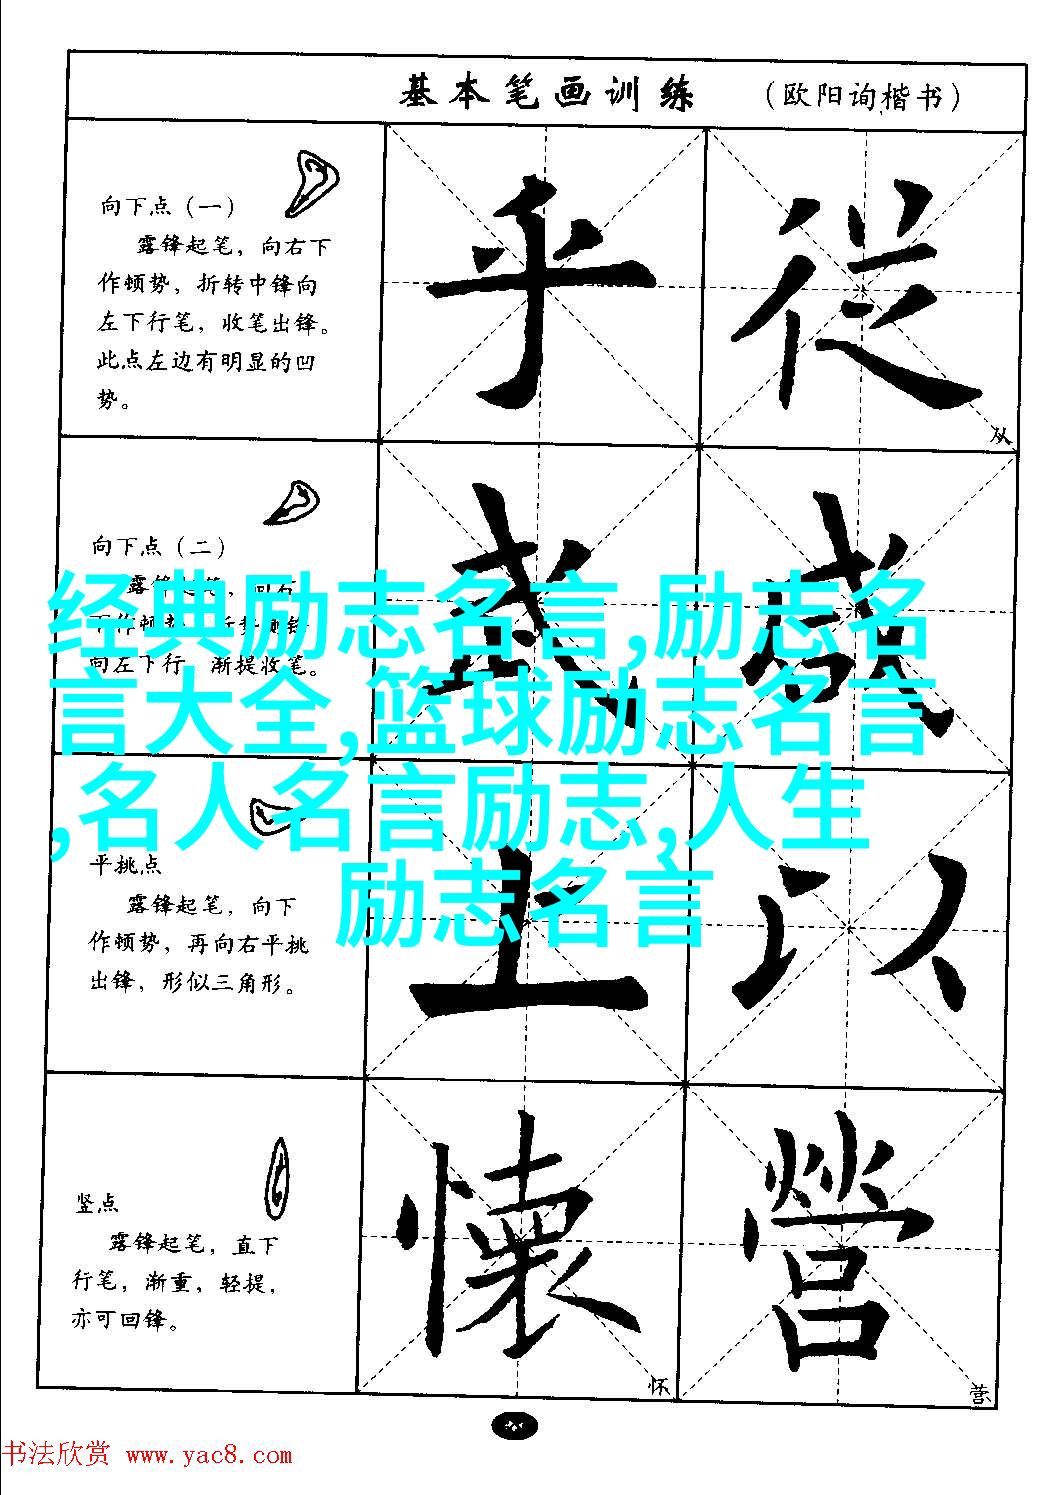 基本笔画训练 （欧阳询楷书）
向下点（一）
露锋起笔，向右下
作顿势，折转中锋向
左下行笔，收笔出锋。
此点左边有明显的凹
势。
乎 從
从
向下点（二）
露锋起笔，向右
向左下行 渐提收笔。
盛 感
经典励志名言,励志名
言大全,篮球励志名言
,名人名言励志,人生
励志名言
平挑点
露锋起笔，向下
作顿势，再向右平挑
出锋，形似三角形。
上 以
竖点
露锋起笔，直下
行笔，渐重，轻提，
亦可回锋。
懷 營
怀 营
书法欣赏 www.yac8.com